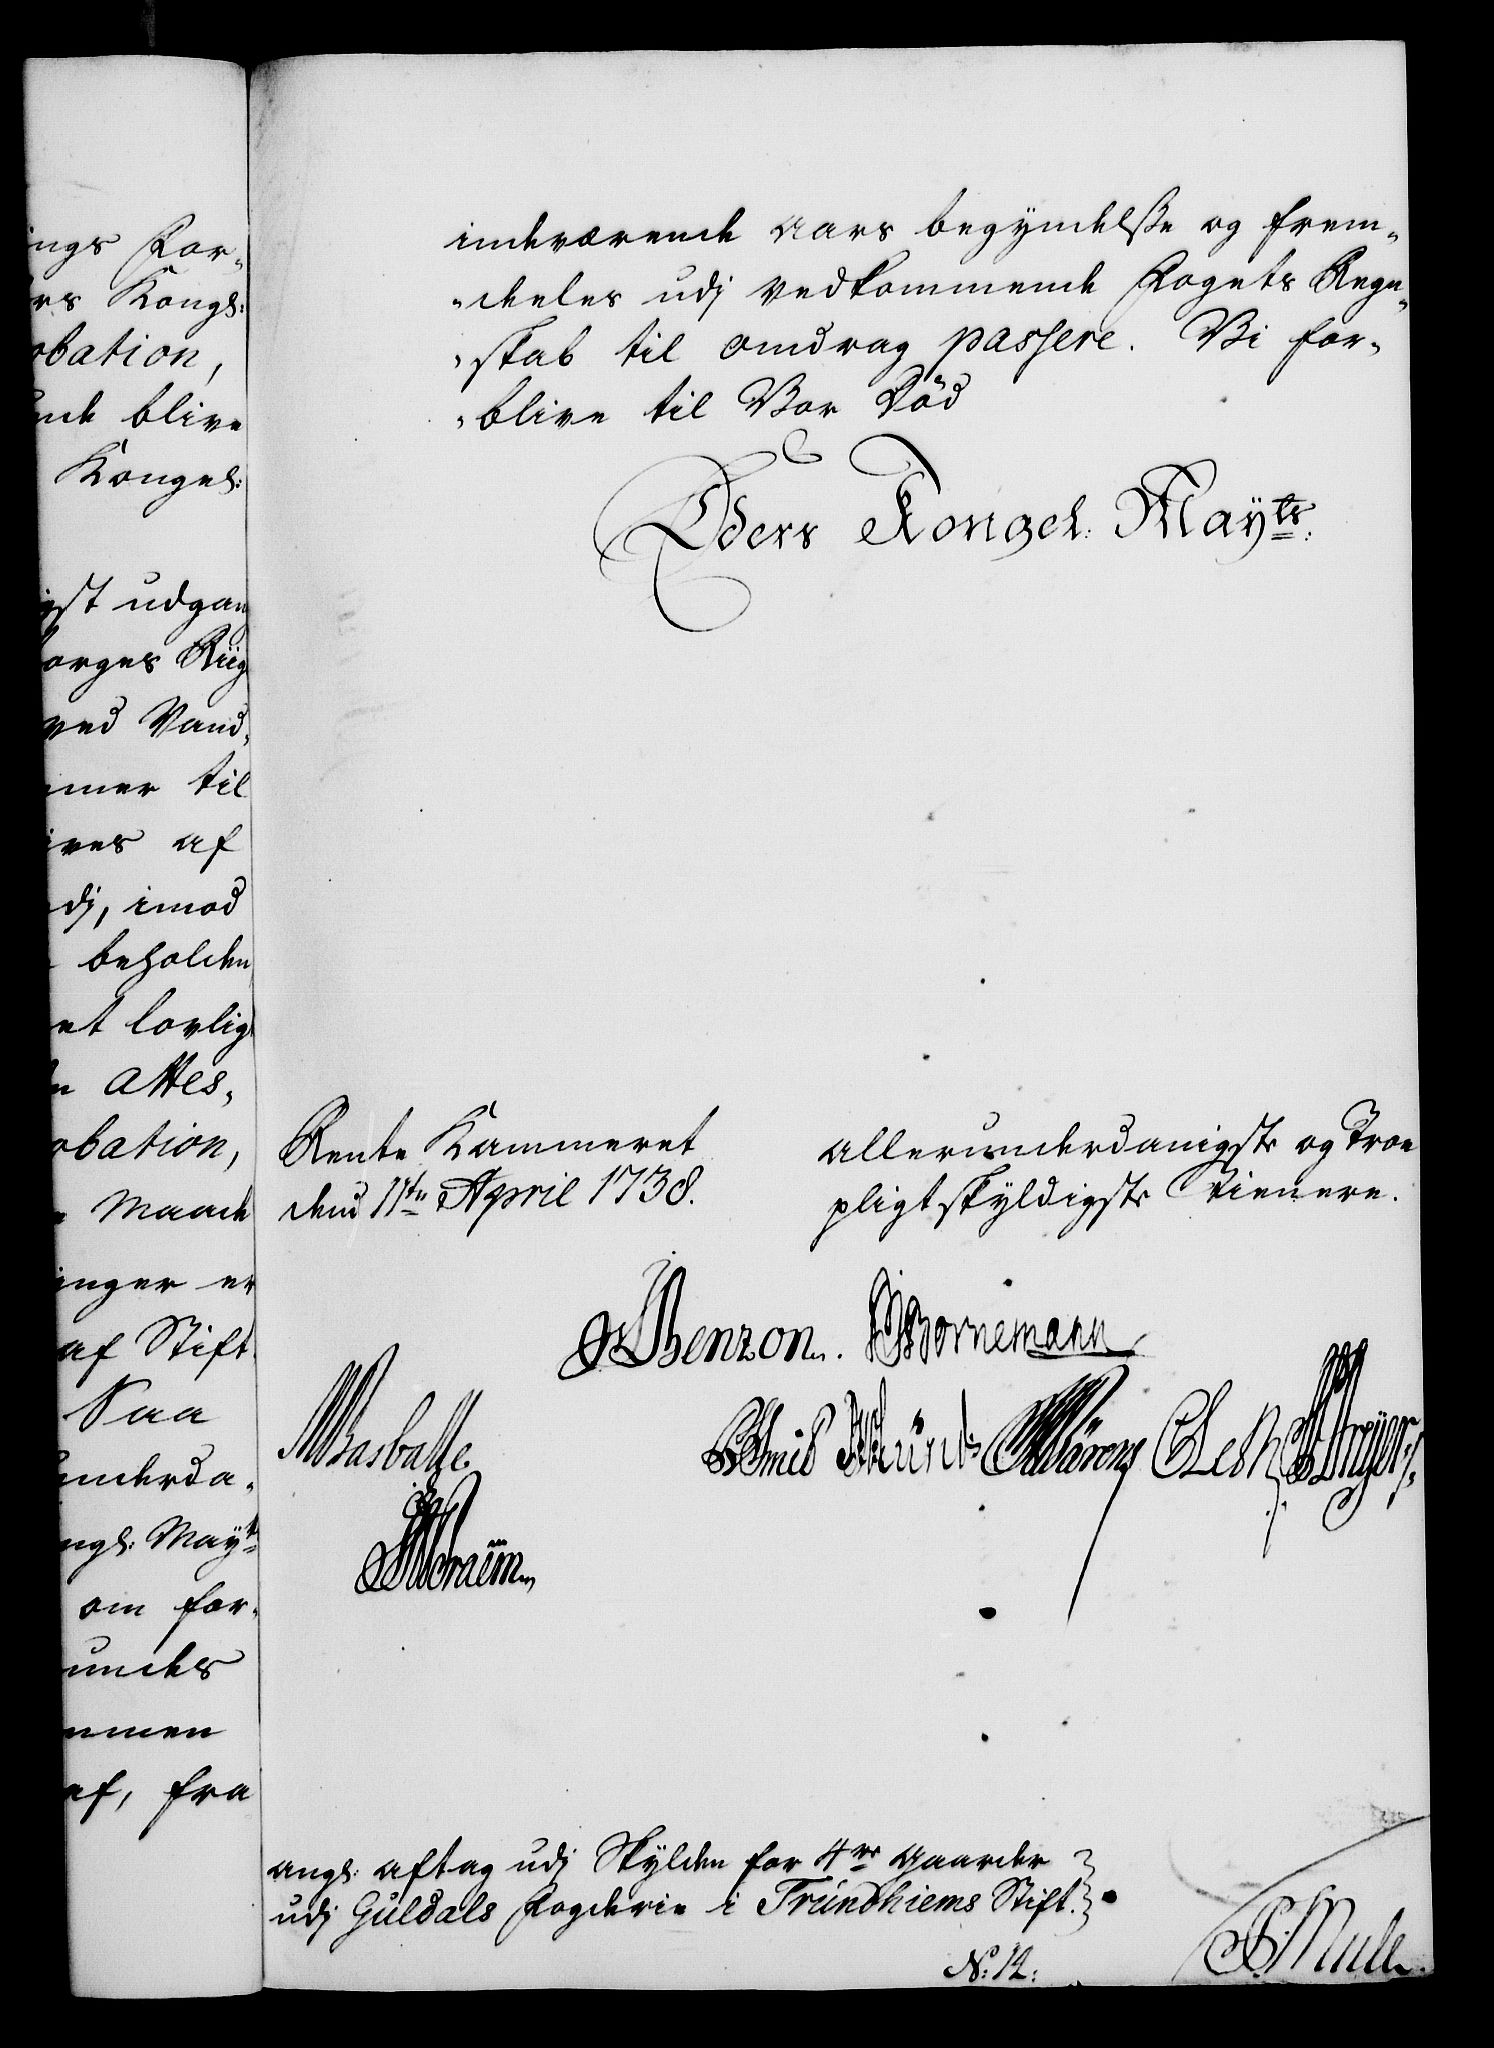 ings For-
rs Kongl:
obation,
nde blive
Kongel:
igst udgan
Norges Riig
ved Vand-
mer til
ives af
udj, imod
beholden
et lovlig
en Attes-
obation,
Maade
inger er
af Stift
Saa
underda-
ngl: Mayts
om for-
undes
mmen
ef, fra
indeværende Aars begyndelsse og frem-
-deeles udj vedkommende Fogets Regn-
-skab til omdrag passere. Vi for-
-blive til Vor Död
Eders Kongel: Mayts:
Rente Kammeret
dend 11te April 1738.
allerunderdanigste og Troe
pligtskyldigste Tienere.
Benzon. Bornemann
Basballe. Smid Lesk Meyer
Braëm
angl: aftag udj Skylden for 4re Gaarder
udj Guldals Fogderie i Trundhiems Stift.
No: 12:
Mule